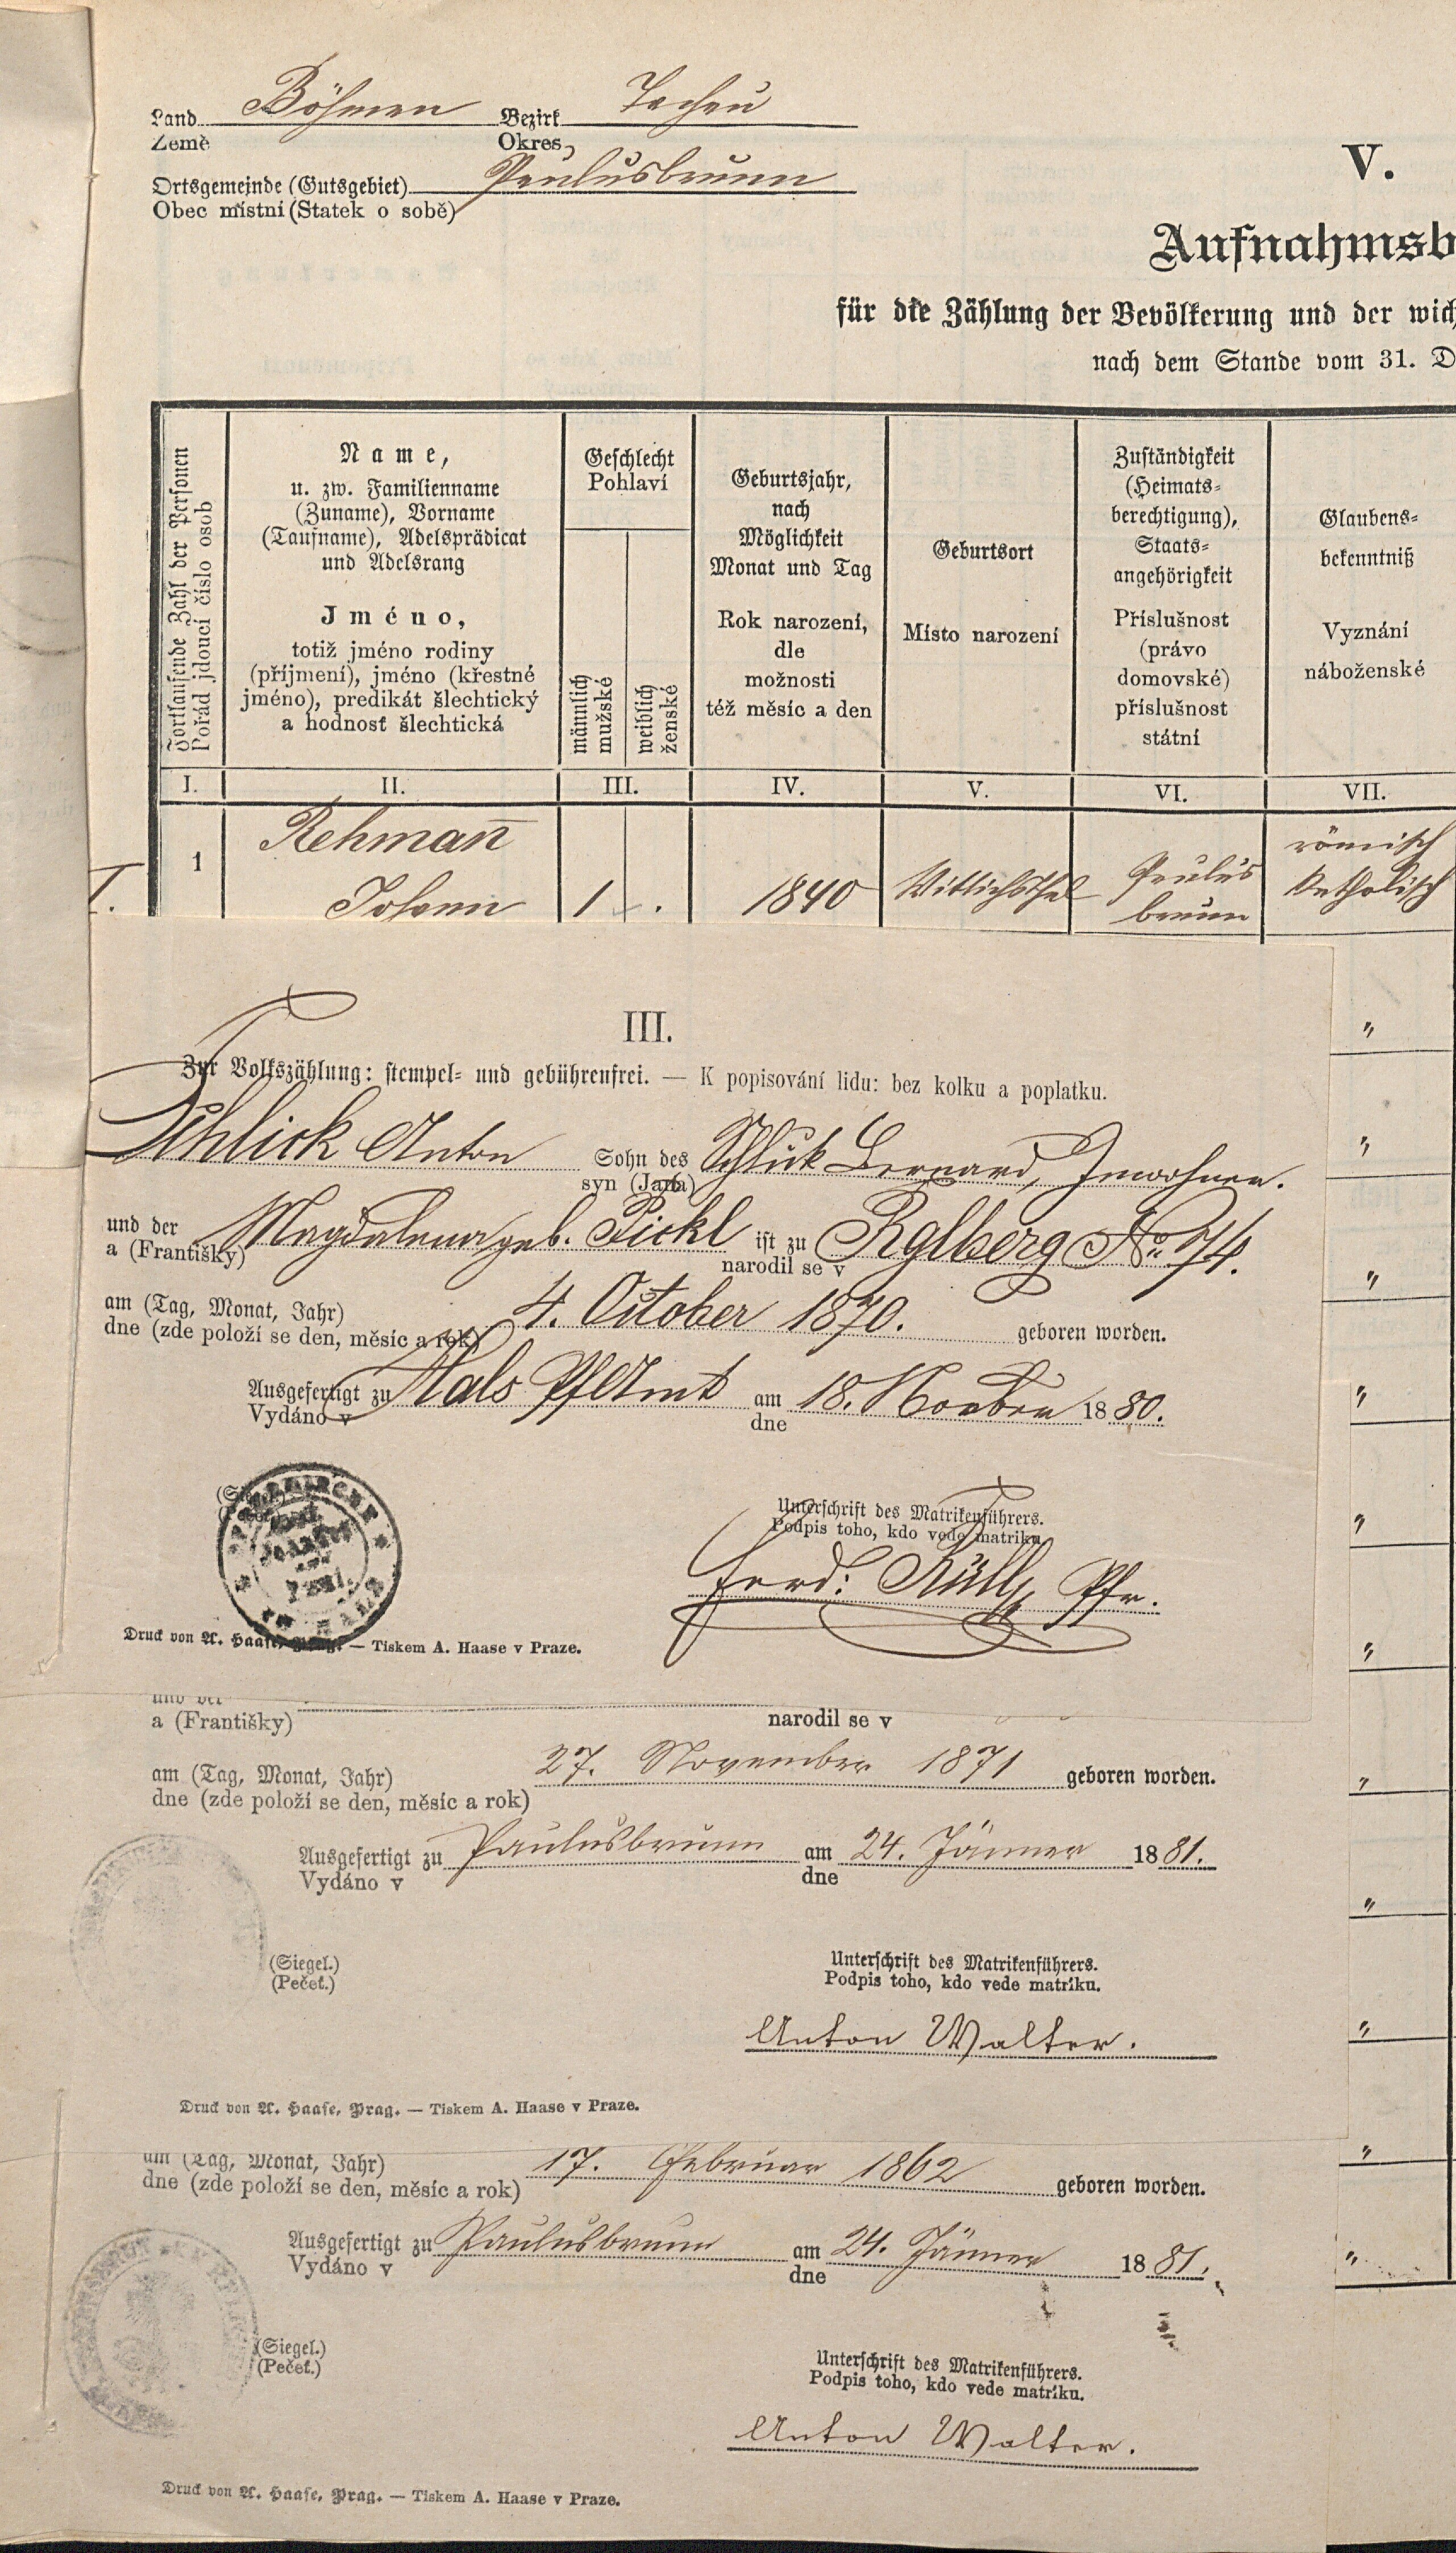 Land Böhmen Bezirk Tachau
Země Okres
Ortsgemeinde (Gutsgebiet) Paulusbrunn
Obec místní (Statek o sobě)
V.
Aufnahmsb
für die Zählung der Bevölkerung und der wich
nach dem Stande vom 31. D
Fortlaufende Zahl der Personen
Pořád jdoucí číslo osob
Name,
u. zw. Familienname
(Zuname), Vorname
(Taufname), Adelsprädicat
und Adelsrang
Jméno,
totiž jméno rodiny
(příjmení), jméno (křestné
jméno), predikát šlechtický
a hodnosť šlechtická
Geschlecht
Pohlaví
männlich
mužské
weiblich
ženské
Geburtsjahr,
nach
Möglichkeit
Monat und Tag
Rok narození,
dle
možnosti
též měsíc a den
Geburtsort
Místo narození
Zuständigkeit
(Heimats-
berechtigung),
Staats-
angehörigkeit
Příslušnost
(právo
domovské)
příslušnost
státní
Glaubens-
bekenntniß
Vyznání
náboženské
I. II. III. IV. V. VI. VII.
I. 1 Rehman̅ Johann 1 . 1840 Wittichsthal Paulus brunn römisch katholisch
III.
Zur Volkszählung: stempel- und gebührenfrei. — K popisování lidu: bez kolku a poplatku.
Schlick Anton Sohn des Schlick Bernard, Inwohner.
syn (Jana)
und der Magdalena geb. Pickl ist zu Rglberg No. 74.
a (Františky) narodil se v
am (Tag, Monat, Jahr) 4. October 1870. geboren worden.
dne (zde položí se den, měsíc a rok)
Ausgefertigt zu Hals PfAmt am 18. Novber 1880.
Vydáno v dne
(Siegel.)
(Pečeť.)
Unterschrift des Matrikenführers.
Podpis toho, kdo vede matriku.
Ferd: Pfr.
Druck von A. Haase, Prag. — Tiskem A. Haase v Praze.
und der
a (Františky) narodil se v
am (Tag, Monat, Jahr) 27. November 1871 geboren worden.
dne (zde položí se den, měsíc a rok)
Ausgefertigt zu Paulusbrunn am 24. Jänner 1881.
Vydáno v dne
(Siegel.)
(Pečeť.)
Unterschrift des Matrikenführers.
Podpis toho, kdo vede matriku.
Anton Walter.
Druck von A. Haase, Prag. — Tiskem A. Haase v Praze.
am (Tag, Monat, Jahr) 17. Februar 1862 geboren worden.
dne (zde položí se den, měsíc a rok)
Ausgefertigt zu Paulusbrunn am 24. Jänner 1881.
Vydáno v dne
(Siegel.)
(Pečeť.)
Unterschrift des Matrikenführers.
Podpis toho, kdo vede matriku.
Anton Walter.
Druck von A. Haase, Prag. — Tiskem A. Haase v Praze.